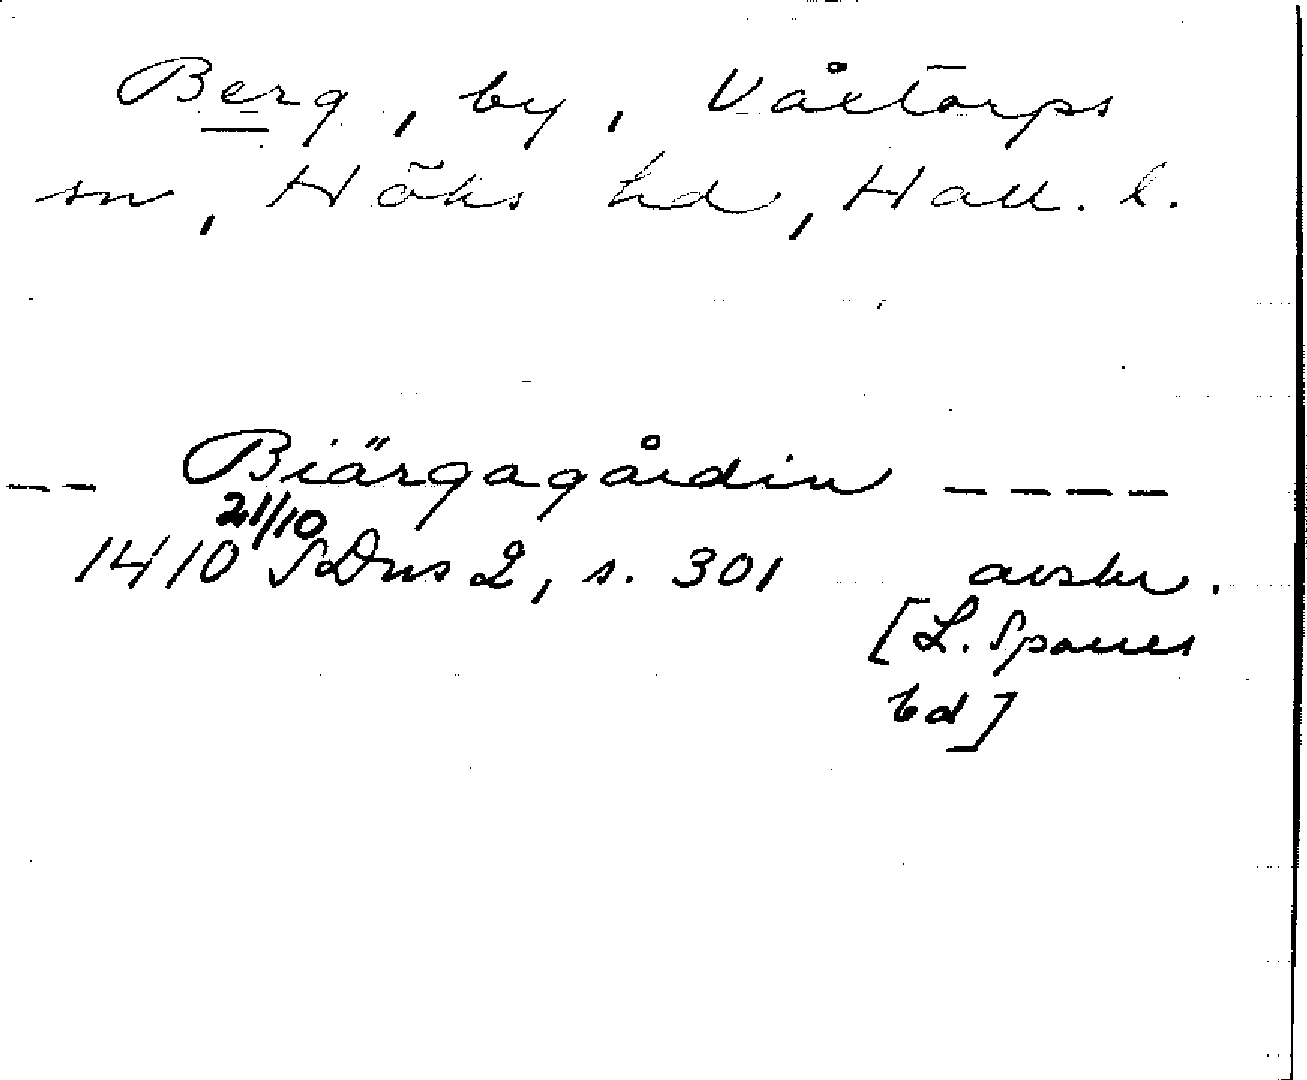 Berg, by, Våxtorps
sn, Höks hd, Hall. l.
-- Biärgagårdin ----
21/10
1410 SDns 2, s. 301 avskr.
[L. Sparres
bd]